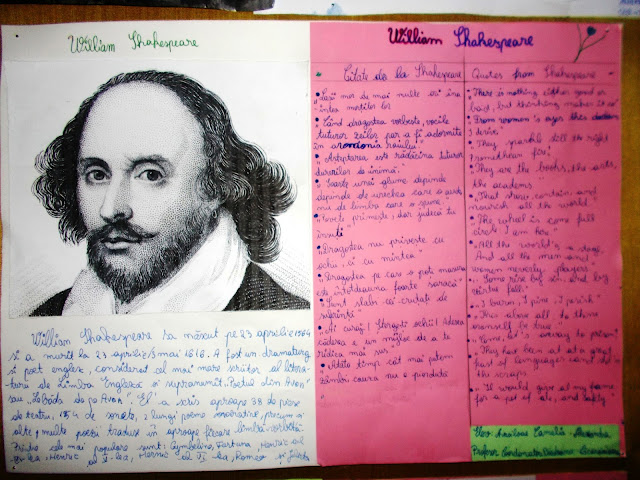 William Shakespeare
William Shakespeare s-a născut pe 23 aprilie 1564
și a murit la 23 aprilie/3 mai 1616. A fost un dramaturg
și poet englez, considerat cel mai mare scriitor al litera-
turii de limba Engleză și supranumit „Poetul din Avon"
sau „Lebăda de pe Avon". El a scris aproape 38 de piese
de teatru, 154 de sonete, 2 lungi poeme narative, precum și
alte multe poezii traduse în aproape fiecare limbă vorbită.
Printre cele mai populare sunt: Cymbeline, Furtuna, Henric al
al V-lea, Henric al VI-lea, Romeo și Julieta
William Shakespeare
Citate de la Shakespeare
„Lașii mor de mai multe ori îna-
intea morților lor
„Când dragostea vorbește, vocile
tuturor zeilor par a fi adormite
în armonia raiului"
„Așteptarea est rădăcina tuturor
durerilor de inimă.
„Soarta unei glume depinde
depinde de urechea care o aude
nu de limba care o spune.
primește, dar judecă tu
însuți
„Dragostea nu privește cu
ochii, ci cu mintea"
„Dragostea pe care o poți măsura
este întotdeauna foarte săracă"
„Sunt slabi cei cruțați de
suferință"
Ai curaj! Șterge-ți ochii! Adesea
căderea e un mijloc de a te
ridica mai sus
Atâta timp cât mai putem
zâmbi cauza nu e pierdută
Quotes from Shakespeare
There is nothing either good or
bad, but thinking makes it so
From women's eyes this doctrine
I derive:
They sparkle still the right
Promethean fire;
They are the books, the arts,
the academes
That show, contain and
nourish all the world"
„The wheel is come full
circle I am here"
„All the world's a stage,
And all the men and
women merely players"
Some rise by sin, and by
virtue fall"
„I burn, I pine, I perish"
This above all, to thine
ownself be true"
They have been at a great
feast of languages and stol'n
the scraps
„I would give all my fame
for a pot of ale, and safety"
Elev:
Profesor